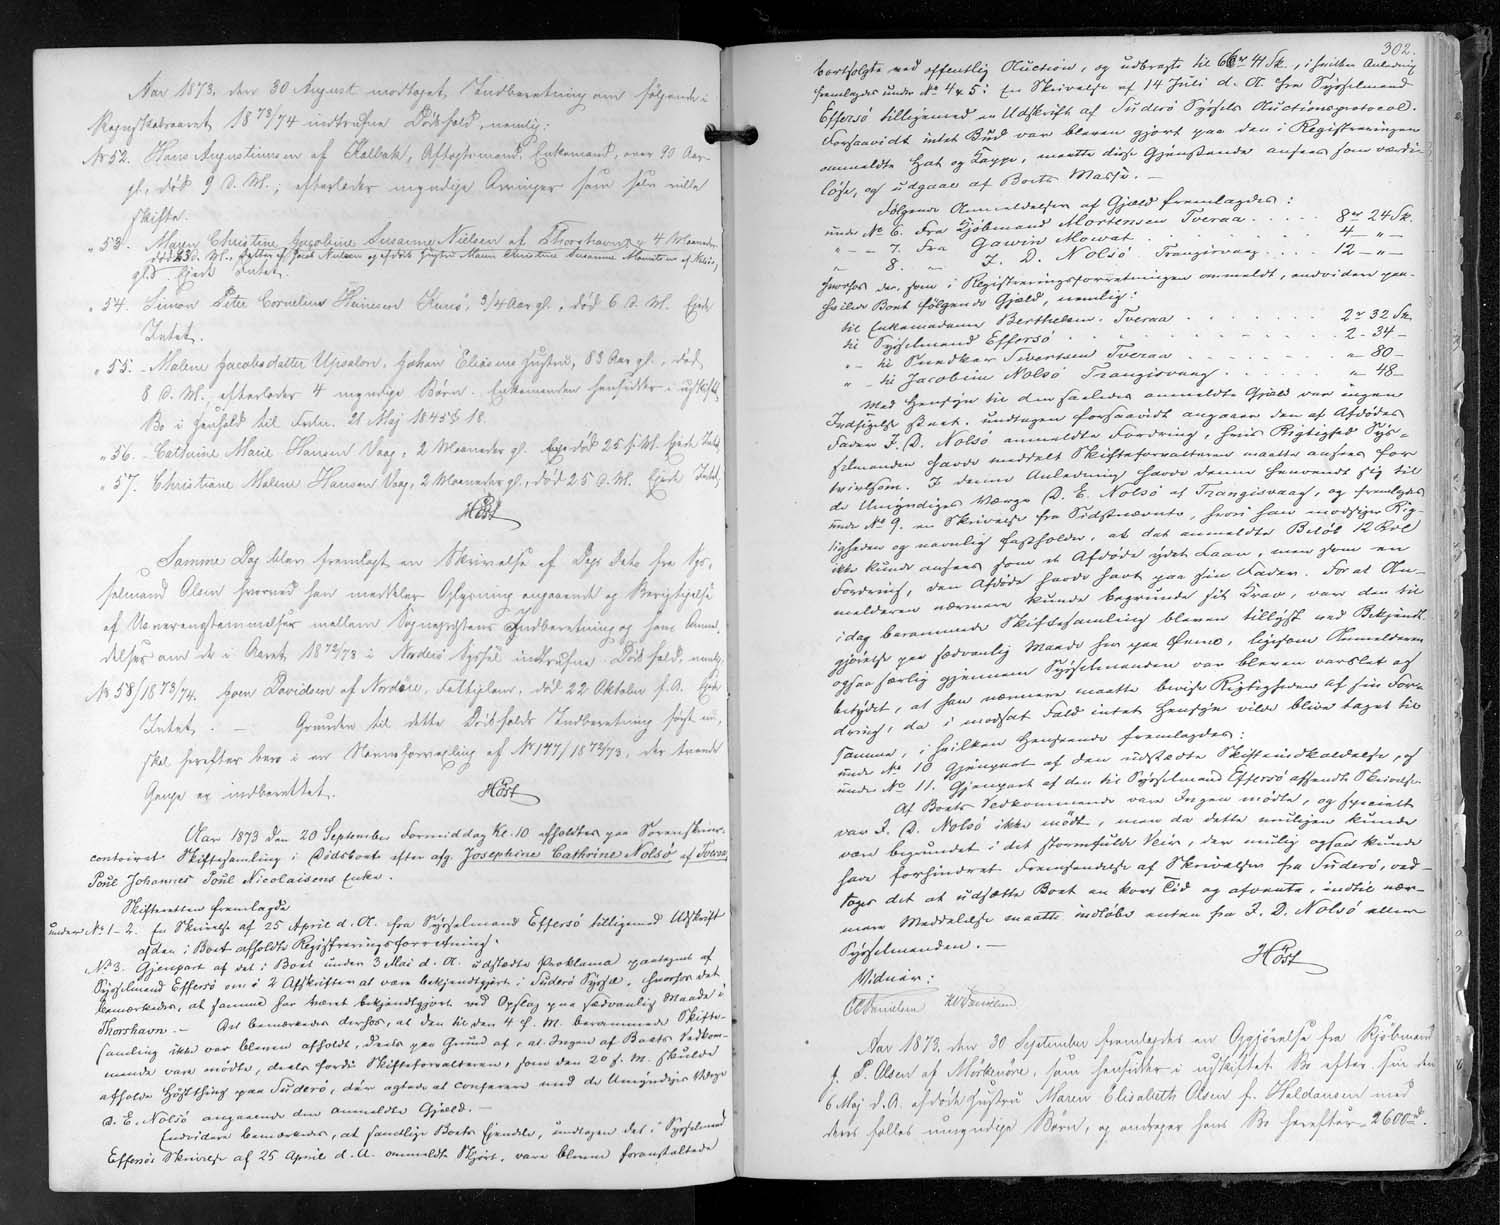 Aar 1873, den 30 August modtoges Indberetning om følgende i
Regnskabsaaret 1873/74 indtrufne Dødsfald, nemlig:
Nr 52. Hans Augustinusen af Kalbak, Aftægtsmand, Enkemand, over 90 Aar
gl., død 9 d. M.; efterlader myndige Arvinger som selv ville
skifte.
" 53. Maren Christine Jacobine Susanne Nielsen af Thorshavn, 4 Maaneder
død 23 d. M., Datter af Jacob Nielsen og afdøde Hustru Maren Christine Susanne af Nolsö,
gl. Ejede Intet.
" 54. Simon Peter Cornelius Heinesen Kunö, 3/4 Aar gl., død 6 d. M. Ejede
Intet.
" 55. Malene Jacobsdatter Upsalon, Johan Eliesens Hustru, 83 Aar gl., død
8 d. M., efterlader 4 myndige Børn. Enkemanden hensidder i uskiftet
Bo i Henhold til Frdn. 21 Maj 1845 § 18.
" 56. Cathrine Marie Hansen Vaag, 2 Maaneder gl. død 25 f. M. Ejede Intet
" 57. Christiane Malene Hansen Vaag, 2 Maaneder gl., død 25 d. M. Ejede Intet
Höst
Samme Dag blev fremlagt en Skrivelse af Dags Dato fra Sys-
selmand Olsen hvorved han meddeler Oplysning angaaende og Berigtigelse
af Uoverensstemmelser mellem Sognepræstens Indberetning og hans Anmel-
delser om de i Aaret 1872/73 i Norderö Syssel indtrufne Dødsfald, nemlig
No 58/1873/74. Joen Davidsen af Norddeble, Fattiglem, død 22 Oktober f. A. Ejede
Intet. — Grunden til dette Dødsfalds Indberetning først nu,
skal herefter være i en Navneforvexling af No 147/1872/73, der tvende
Gange er indberettet. Höst
Aar 1873 den 20 September Formiddag Kl. 10 afholdtes paa Sorenskriver-
contoiret Skiftesamling i Dödsboet efter afg. Josephine Cathrine Nolsö af Tveraa,
Poul Johannes Poul Nicolaisens Enke.
Skifteretten fremlagde
under No 1-2. En Skrivelse af 25 April d. A. fra Sysselmand Effersö tilligemed Udskrift
af den i Boet afholdte Registreringsforretning.
No 3. Gjenpart af det i Boet under 3 Mai d. A. udstædte Proklama paategnet af
Sysselmand Effersö om i 2 Afskrifter at være bekjendtgjort i Suderö Syssel, hvorhos det
bemærkedes, at samme har været bekjendtgjort ved Opslag paa sædvanlig Maade i
Thorshavn. — Det bemærkedes derhos, at den til den 4 f. M. berammede Skifte-
samling ikke var bleven afholdt, deels paa Grund af, at Ingen af Boets Vedkom-
mende vare mødte, deels fordi Skifteforvalteren, som den 20 f. M. skulde
afholde Høstthing paa Suderö, der agtede at conferere med de Umyndiges Værge
D. E. Nolsö angaaende den anmeldte Gjæld. —
Endvidere bemærkedes, at samtlige Boets Eiendele, undtagen det i Sysselmand
Effersös Skrivelse af 25 April d. A. anmeldte Skjört, vare blevne foranstaltede
302.
bortsolgte ved offentlig Auction, og udbragte til 41 Sk., i hvilken Anledning
fremlagdes under No 4 & 5: En Skrivelse af 14 Juli d. A. fra Sysselmand
Effersö tilligemed en Udskrift af Suderö Syssels Auctionsprotocol.
Forsaavidt intet Bud var bleven gjort paa den i Registreringen
anmeldte Hat og Kappe, maatte disse Gjenstande ansees som værdi-
løse, og udgaae af Boets Masse. —
Følgende Anmeldelser af Gjæld fremlagdes:
under No 6. Fra Kjöbmand Mortensen Tveraa . . . . . 8 rd 24 Sk.
" — 7. Fra Gawin Mowat . . . . . 4 - " -
" 8. " J. D. Nolsö Trangisvaag . . . . 12 - " -
hvorhos der, som i Registreringsforretningen anmeldt, endvidere paa-
hvilede Boet følgende Gjæld, nemlig:
til Enkemadame Berthelsen Tveraa . . . . . 2 rd 32 Sk
til Sysselmand Effersö . . . . . 2 - 34 -
" - til Snedker Sivertsen Tveraa . . . . . " - 80 -
" - til Jacobine Nolsö Trangisvaag . . . . . " - 48 -
Med Hensyn til den saaledes anmeldte Gjæld var ingen
Indsigelse skeet, undtagen forsaavidt angaaer den af Afdødes
Fader J. D. Nolsö anmeldte Fordring, hvis Rigtighed Sys-
selmanden havde meddelt Skifteforvalteren maatte ansees for
tvivlsom. I denne Anledning havde denne henvendt sig til
de Umyndiges Værge D. E. Nolsö af Trangisvaag, og fremlagdes
under No 9. en Skrivelse fra Sidstnævnte, hvori han modsiger Rig-
tigheden og navnlig fastholder, at det anmeldte Beløb 12 Rdl
ikke kunde ansees som et Afdøde ydet Laan, men som en
Fordring, den Afdøde havde havt paa sin Fader. For at An-
melderen nærmere kunde begrunde sit Krav, var den til
idag berammede Skiftesamling bleven tillyst ved Bekjendt-
gjørelse paa sædvanlig Maade her paa Øerne, ligesom Anmelderen
ogsaa særlig gjennem Sysselmanden var bleven varslet og
betydet, at han nærmere maatte bevise Rigtigheden af sin For-
dring, da i modsat Fald intet Hensyn vilde blive taget til
samme, i hvilken Henseende fremlagdes:
under No 10 Gjenpart af den udstædte Skifteindkaldelse, og
under No 11. Gjenpart af den til Sysselmand Effersö afsendte Skrivelse.
Af Boets Vedkommende vare Ingen mødte, og specielt
var J. D. Nolsö ikke mødt, men da dette muligen kunde
være begrundet i det stormfulde Veir, der mulig ogsaa kunde
have forhindret Fremsendelse af Skrivelser fra Suderö, ved-
toges det at udsætte Boet en kort Tid og afvente, indtil nær-
mere Meddelelse maatte indløbe enten fra J. D. Nolsö eller
Sysselmanden. —
Höst
Vidner:
Aar 1873, den 30 September fremlagdes en Opgjørelse fra Kjöbmand
J. P. Olsen af Mörkenöre, som hensidder i uskiftet Bo efter sin den
6 Maj d. A. afdøde Hustru Maren Elisabeth Olsen f. Heldansen med
deres fælles umyndige Børn, og andrager hans Bo herefter 2600 rd.